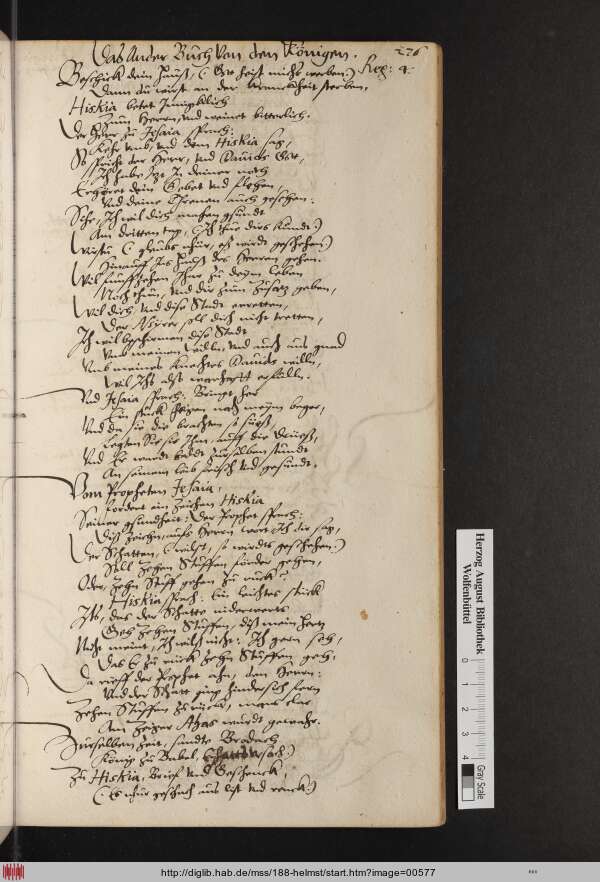 Das Ander Buch von den Königen. 276
Beschick dein hauß, (: Gott heist nichts werben:) Reg: 4.
Dann du wirst an der kranckheit sterben,
Hiskia betet Innigklich
Zum Herren, und weinet bitterlich.
Der Herr zu Jesaia sprach:
Kehr umb, und dem Hiskia sag,
So spricht der Herr, und Dauids Gott,
Ich habe Itzt In deiner noth
Erhöret dein Gebet und flehen,
Und deine Threnen auch gesehen:
Sihe, Ich wil dich machen gsundt
Am dritten tag, (: Ich thue dirs kundt:)
Wirstu (: glaubs nhur, eß wirdt geschehen:)
Hinauff Ins Hauß des Herren gehen.
Wil funffzehen Jhar zu deym leben
Noch thun, und dir zum Zusatz geben,
Wil dich und dise Stadt erretten,
Der Assyrer soll dich nicht tretten,
Ich wil beschirmen dise Stadt
Umb meinen willn, und auch aus gnad
Umb meines knechtes Dauids willn,
Wil Ichs alß warhafft erfülln.
Und Jesaia sprach: Bringet her
Ein stuck feigen nach meym beger,
Und da sie die brachten so süeß,
Legten Sie sie Ihm, auff die Drüeß,
Und Er wardt baldt zur selben stundt
An seinem leib frisch und gesundt.
Vom Propheten Jesaia,
fordert ein Zeichen Hiskia
Seiner gsundheit: Der Prophet sprach:
Diß Zeichn, aufs Herrn wort Ich dir sag,
Der Schatten, (: wilst, so wirdts geschehen:)
Soll Zehen Stuffen förder gehen,
Oder, Zehn Stuff gehen zu rück?
Hiskia sprach: Ein leichtes stück
Ists, das der Schatte niderwerts
Geh Zehen Stuffen, diß mein hertz
Nicht meint, Ich wils nicht: Ich gern sech,
Das Er zu rück Zehn Stuffen gech,
Da rieff der Prophet ahn, den Herrn:
Und der Schatt ging hindersich fern
Zehen Stuffen zu rück, mans clar
Am Zeiger Ahas wurdt gewahr.
Zur selben Zeit, sandte Brodach
König zu Babel,
Zu Hiskia, Brief und Geschenck,
(: Es nhur geschach aus list und renck:)
Herzog August Bibliothek
Wolfenbüttel
0 1 2 3 4
Gray Scale
http://diglib.hab.de/mss/188-helmst/start.htm?image=00577